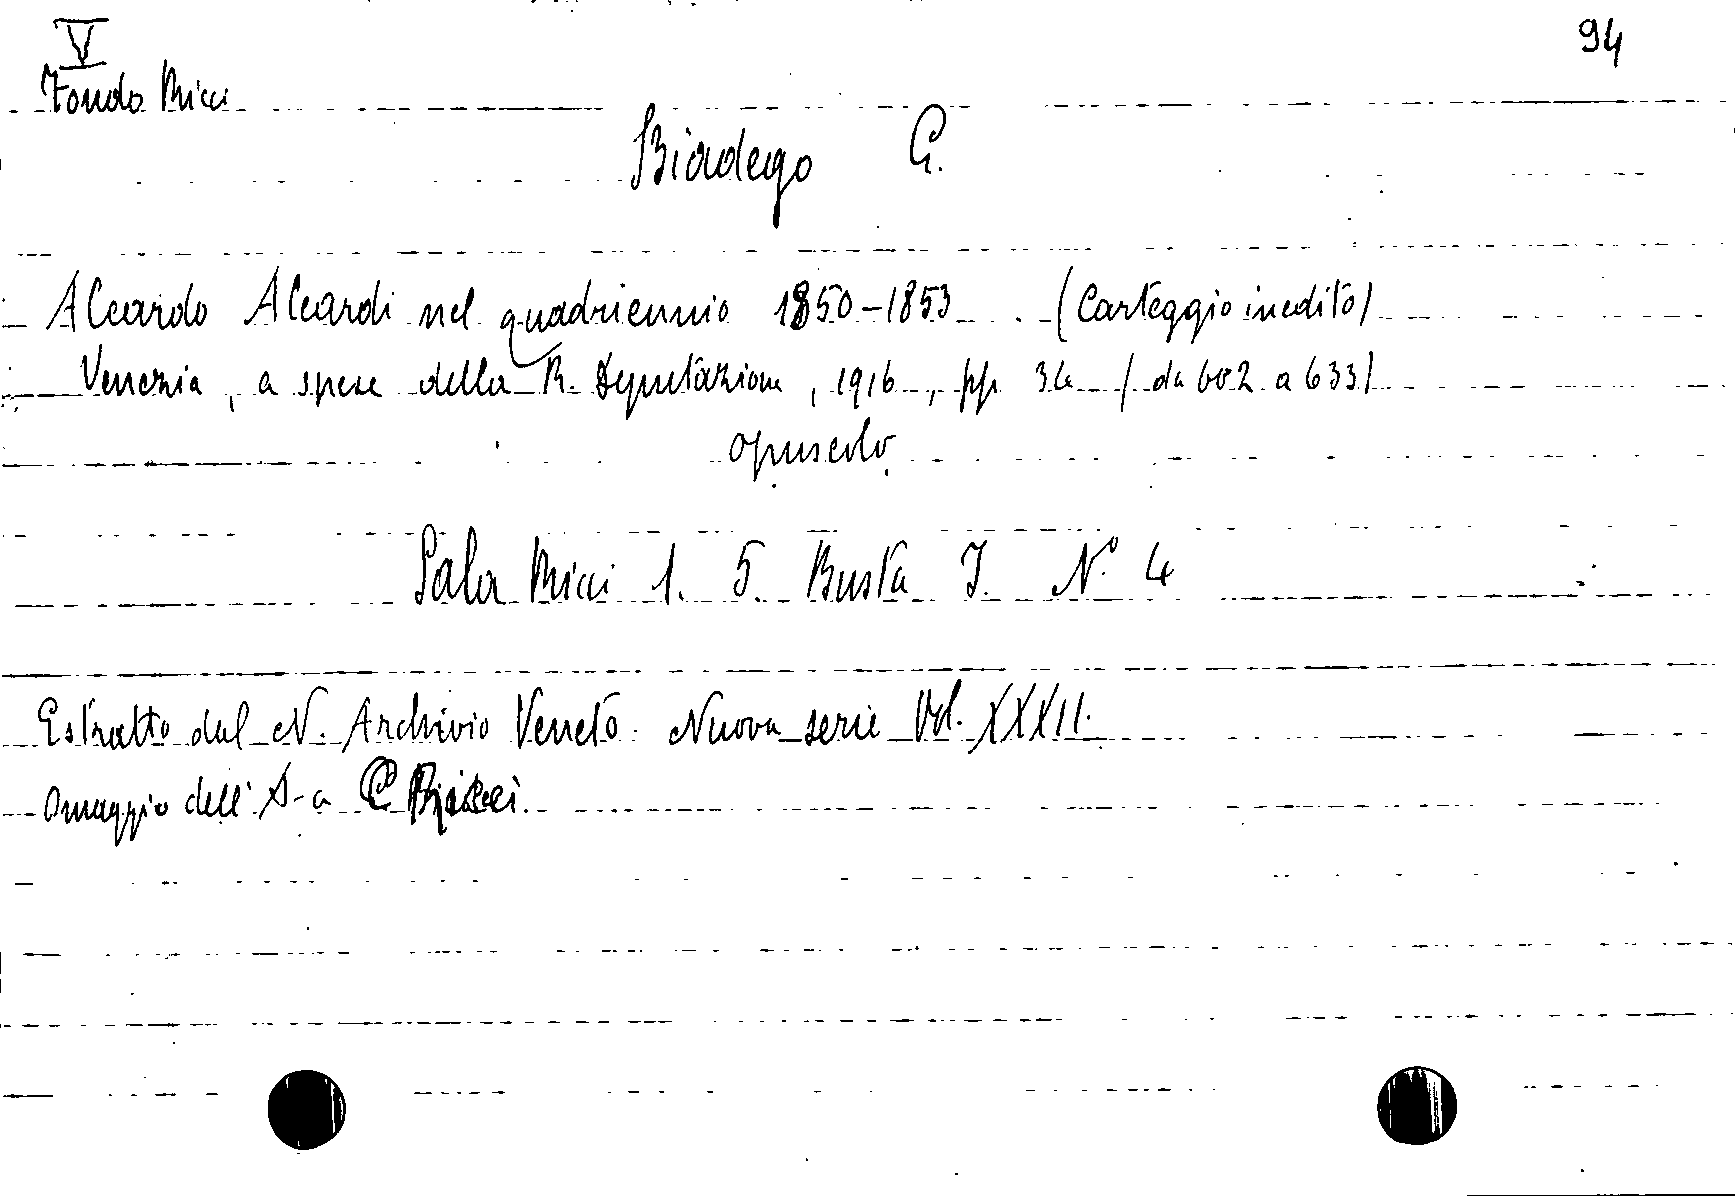 V
94
Fondo Ricci
Biadego G.
Aleardo Aleardi nel quadriennio 1850-1853. (Carteggio inedito)
Venezia, a spese della R. Deputazione, 1916, pp. 34 (da 602 a 633)
opuscolo
Sala Ricci 1. 5. Busta I. N.° 4
Estratto dal N. Archivio Veneto. Nuova serie Vol. XXXII.
Omaggio dell' A-a C. Ricci.